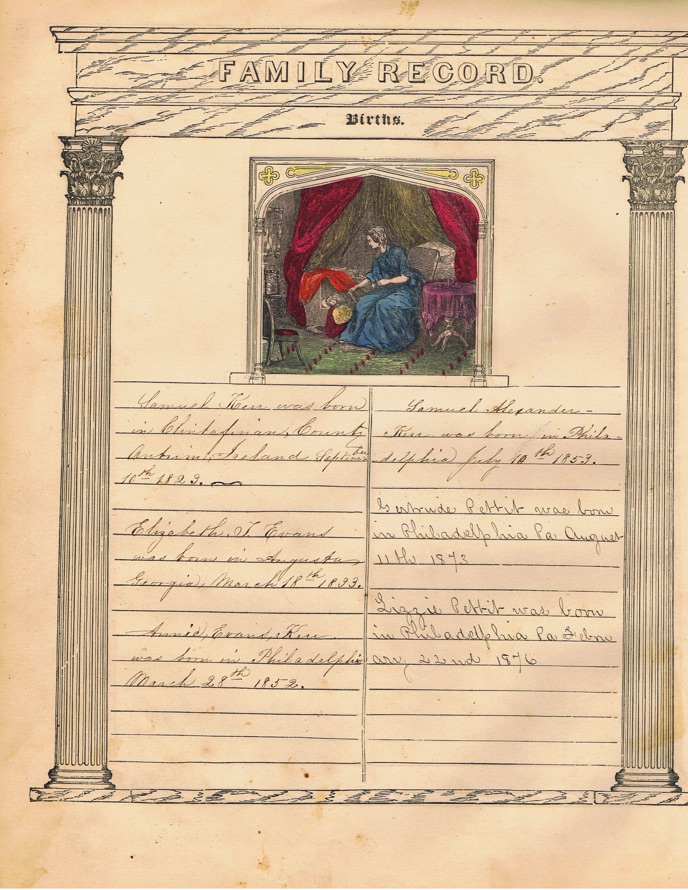 FAMILY RECORD.
Births.
Samuel Kerr was born
in County
Antrim, Ireland September
10th 1823.
Elizabeth. T. Evans
was born in Augusta
Georgia, March 18th 1833.
Annie, Evans, Kerr
was born in Philadelphia
March 28th 1852.
Samuel Alexander-
Kerr was born in Phila-
delphia July 10th 1853.
Gertrude Pettit was born
in Philadelphia Pa August
11th 1873
Lizzie Pettit was born
in Philadelphia Pa Febru
ary 22nd 1876